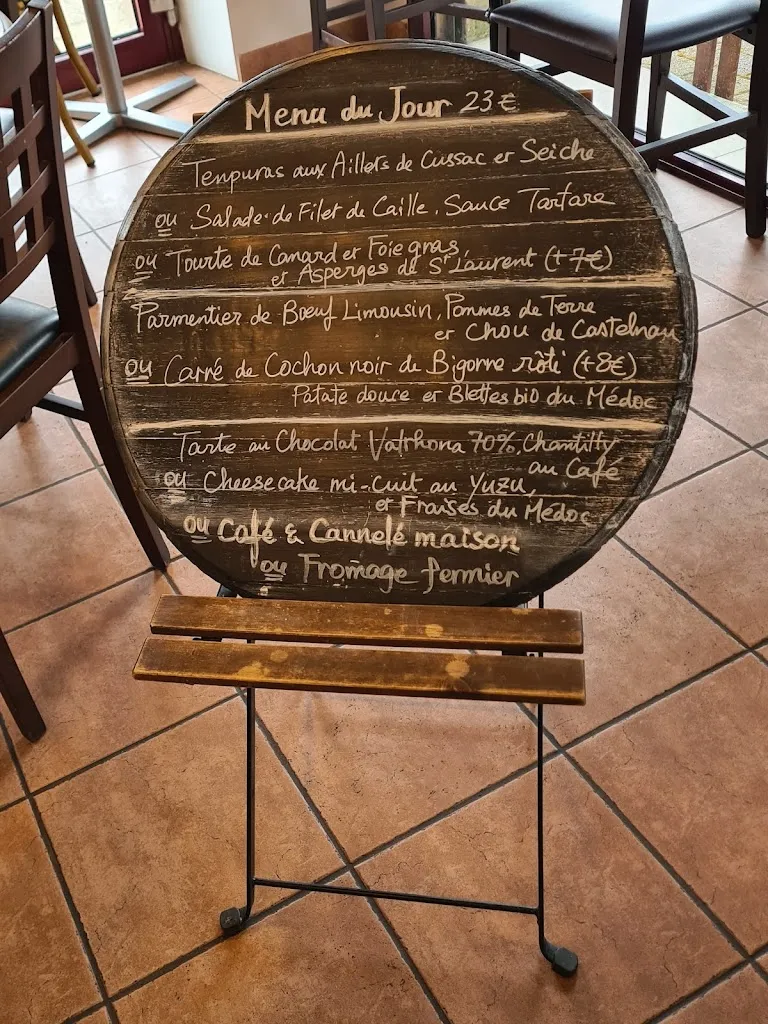 Menu du Jour 23€
Tenpuras aux Aillets de Cussac et Seiche
ou Salade de Filet de Caille, Sauce Tartare
ou Tourte de Canard et Foie gras,
et Asperges de St Laurent (+7€)
Parmentier de Bœuf Limousin, Pommes de Terre
et Chou de Castelnau
ou Carré de Cochon noir de Bigorre rôti (+8€)
Patate douce et Blettes bio du Médoc
Tarte au Chocolat Valrhona 70%, Chantilly
au Café
ou Cheesecake mi-cuit au Yuzu,
et Fraises du Médoc
ou Café & Cannelé maison
ou Fromage fermier